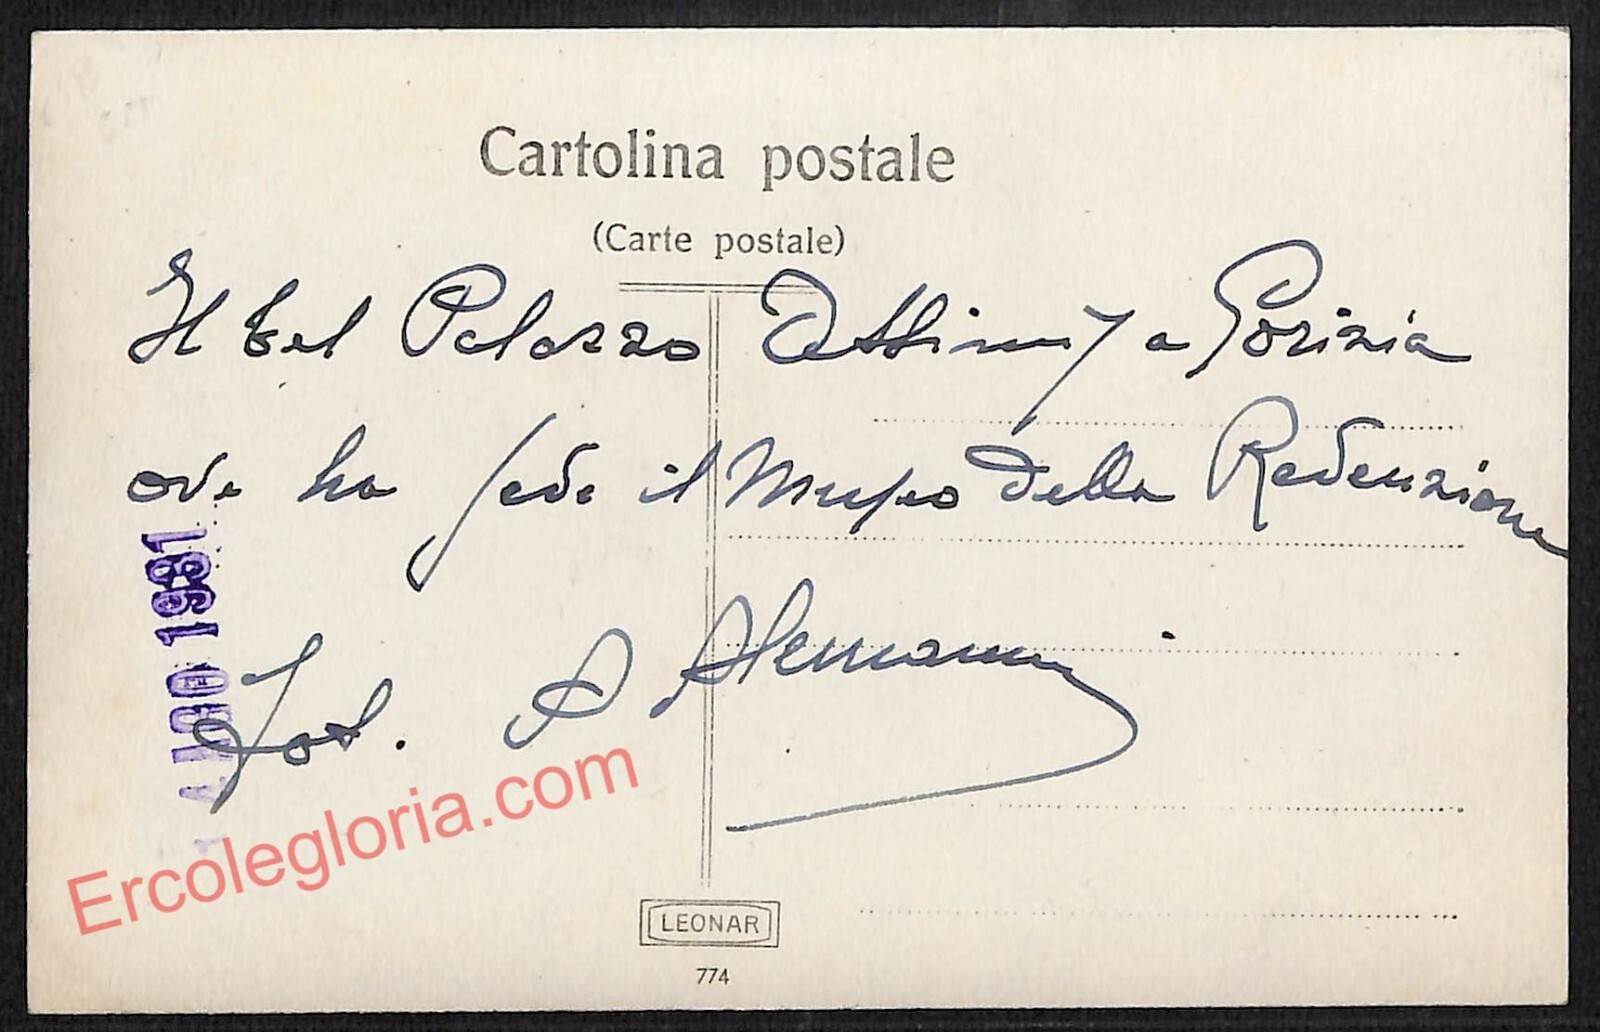 Cartolina postale
(Carte postale)
Il bel Palazzo Attimis a Gorizia
ove ha sede il Museo della Redenzione
Fot. A Alemanni
AGO 1931
Ercolegloria.com
LEONAR
774